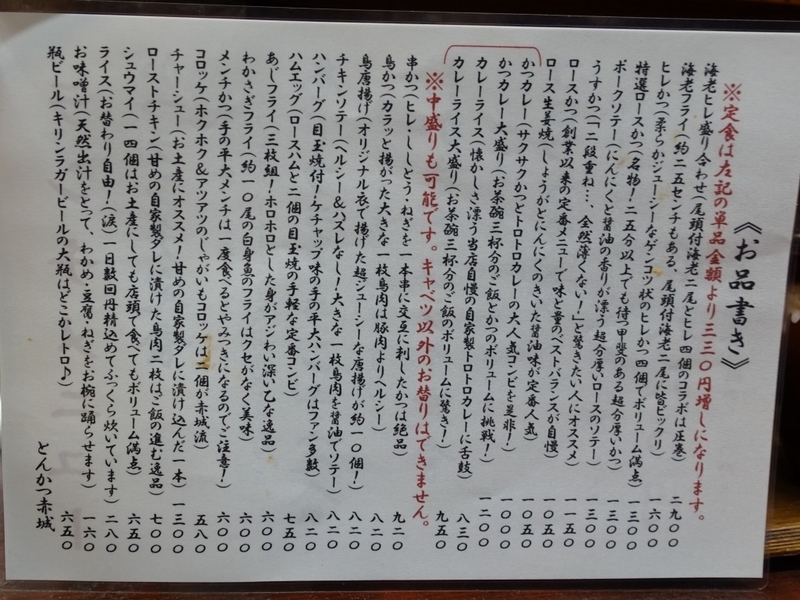 《お品書き》
※定食は左記の単品金額より三三〇円増しになります。
海老ヒレ盛り合わせ(尾頭付海老二尾とヒレ四個のコラボは圧巻) 二九〇〇
海老フライ(約二五センチもある、尾頭付海老二尾に皆ビックリ) 一六〇〇
ヒレかつ(柔らかジューシーなゲンコツ状のヒレかつ四個でボリューム満点) 一三〇〇
特選ロースかつ(名物!二五分以上でも待つ甲斐のある超分厚いかつ) 一三〇〇
ポークソテー(にんにくと醤油の香りが漂う超分厚いロースのソテー) 一三〇〇
うすかつ(「二段重ね…、全然薄くない!」と驚きたい人にオススメ) 一一五〇
ロースかつ(創業以来の定番メニューで味と量のベストバランスが自慢) 一一五〇
ロース生姜焼(しょうがとにんにくのきいた醤油味が定番人気) 一〇五〇
かつカレー(サクサクかつとトロトロカレーの大人気コンビを是非!) 一〇〇〇
かつカレー大盛り(お茶碗三杯分のご飯とかつのボリュームに挑戦!) 一二〇〇
カレーライス(懐かしさ漂う当店自慢の自家製トロトロカレーに舌鼓) 八三〇
カレーライス大盛り(お茶碗三杯分のご飯のボリュームに驚き!) 九五〇
※中盛りも可能です。キャベツ以外のお替りはできません。
串かつ(ヒレ・ししとう・ねぎを一本串に交互に刺したかつは絶品) 九二〇
鳥かつ(カラッと揚がった大きな一枚鳥肉は豚肉よりヘルシー) 八二〇
鳥唐揚げ(オリジナル衣で揚げた超ジューシーな唐揚げが約一〇個!) 八二〇
チキンソテー(ヘルシー&ハズレなし!大きな一枚鳥肉を醤油でソテー) 八二〇
ハンバーグ(目玉焼付!ケチャップ味の手の平大ハンバーグはファン多数) 八二〇
ハムエッグ(ロースハムと二個の目玉焼の手軽な定番コンビ) 七五〇
あじフライ(三枚組!ホロホロとした身がアジわい深い乙な逸品) 六〇〇
わかさぎフライ(約一〇尾の白身魚のフライはクセがなく美味) 六〇〇
メンチかつ(手の平大メンチは一度食べるとやみつきになるのでご注意!) 六〇〇
コロッケ(ホクホク&アツアツのじゃがいもコロッケは二個が赤城流) 五八〇
チャーシュー(お土産にオススメ!甘めの自家製ダレに漬け込んだ一本) 一三〇〇
ローストチキン(甘めの自家製ダレに漬けた鳥肉二枚はご飯の進む逸品) 七〇〇
シュウマイ(一四個はお土産にしても店頭で食べてもボリューム満点) 六五〇
ライス(お替わり自由!(涙)一日数回丹精込めてふっくら炊いています) 二八〇
お味噌汁(天然出汁をとって、わかめ・豆腐・ねぎをお椀に踊らせます) 一六〇
瓶ビール(キリンラガービールの大瓶はどこかレトロ♪) 六五〇
とんかつ赤城